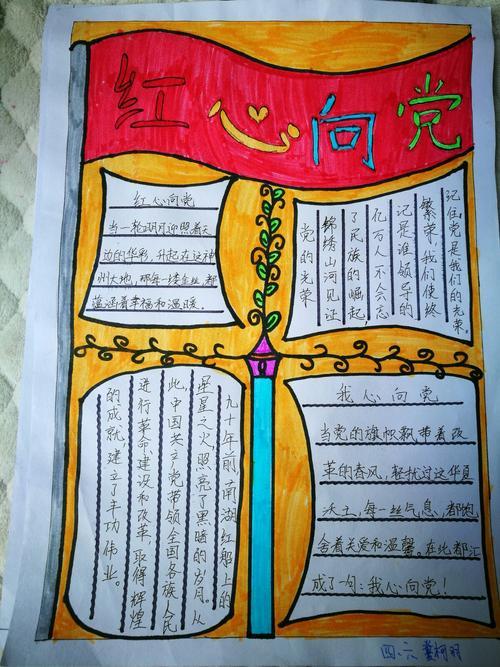 红心向党
红心向党
当一轮明月迎照着天
边的华彩,升起在这神
州大地,那每一缕金丝,都
蕴涵着幸福和温暖。
党的光荣
锦绣山河见证
了民族的崛起,
亿万人不会忘
记是谁领导的
繁荣,我们使终
记住,党是我们的光荣。
九十年前南湖红船上的
星星之火,照亮了黑暗的岁月。从
此,中国共产党带领全国各族人民
进行革命、建设和改革,取得辉煌
的成就,建立了丰功伟业。
我心向党
当党的旗帜飘带着改
革的春风,轻抚过这华夏
沃土,每一丝气息,都饱
含着关爱和温馨。在此都汇
成了一句:我心向党!
四、六